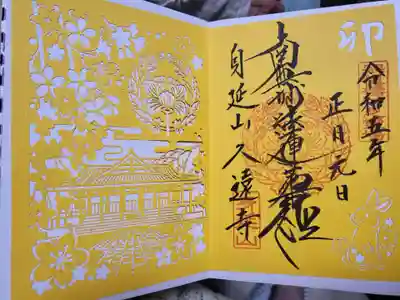 卯
令和五年
正月元日
南無妙法蓮華経
身延山久遠寺